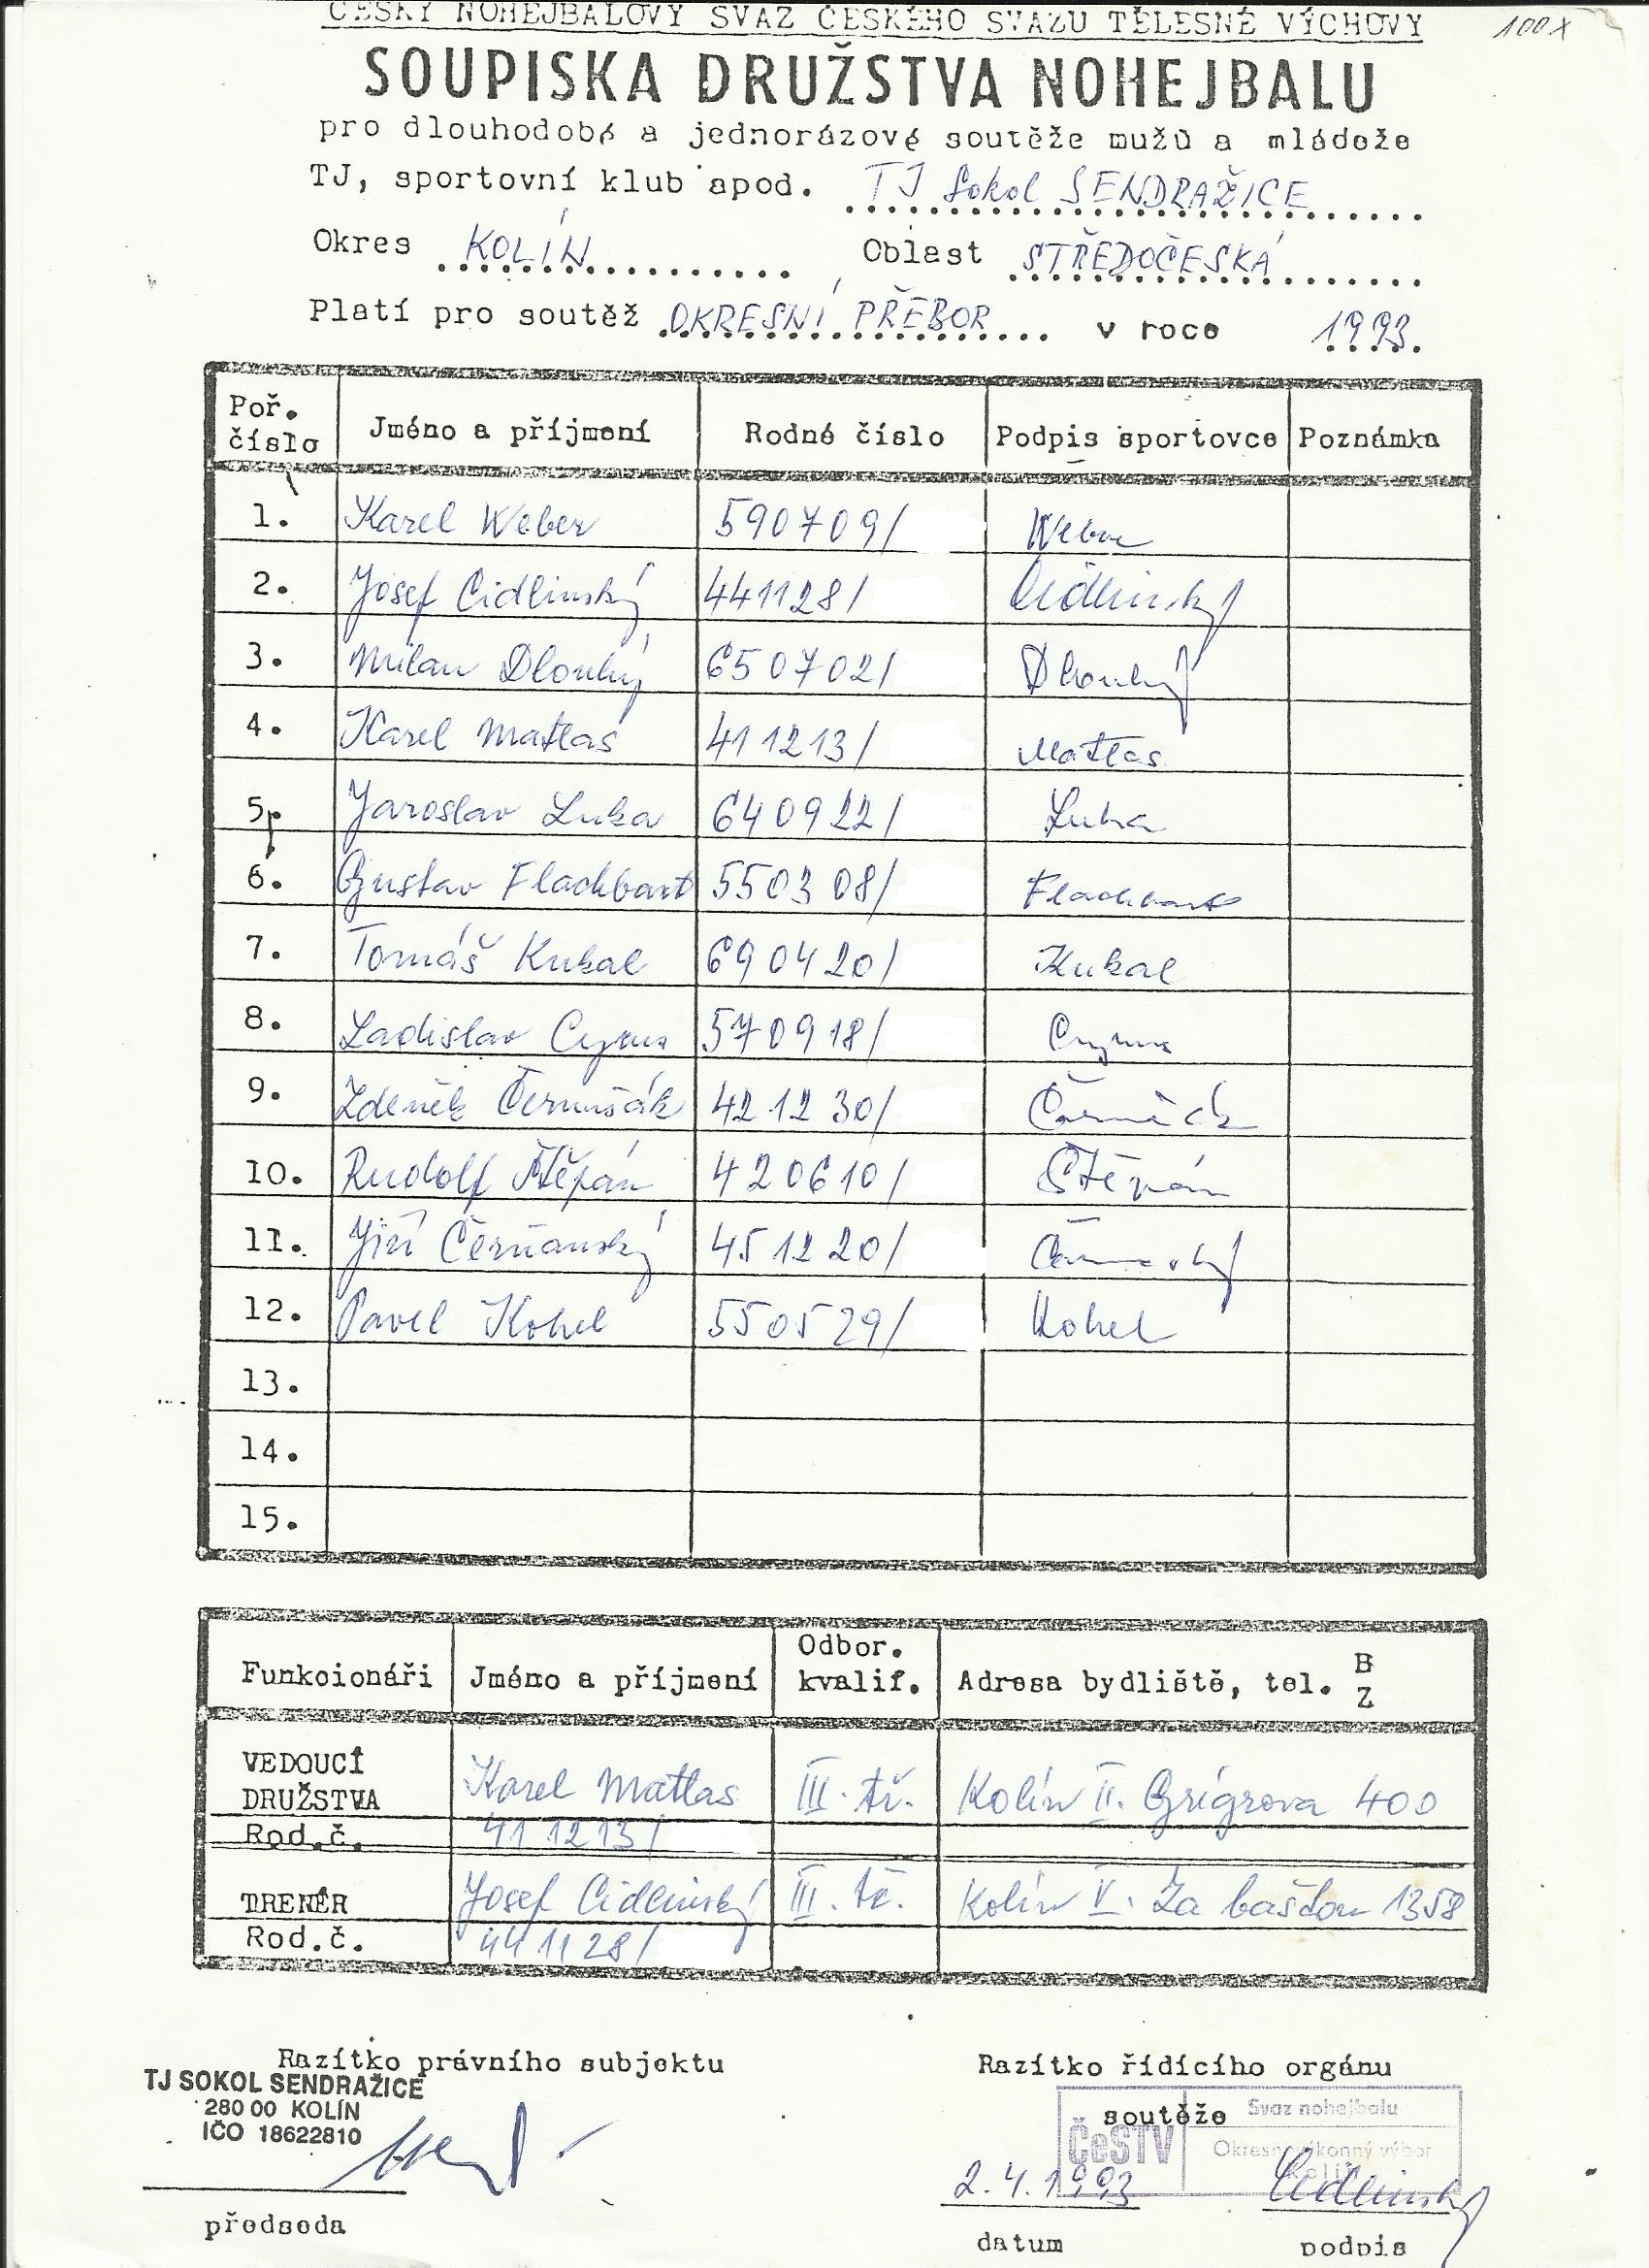 ČESKÝ NOHEJBALOVÝ SVAZ ČESKÉHO SVAZU TĚLESNÉ VÝCHOVY
100x
SOUPISKA DRUŽSTVA NOHEJBALU
pro dlouhodobé a jednorázové soutěže mužů a mládeže
TJ, sportovní klub apod. TJ Sokol SENDRAŽICE
Okres KOLÍN Oblast STŘEDOČESKÁ
Platí pro soutěž OKRESNÍ PŘEBOR v roce 1993.
Poř. číslo Jméno a příjmení Rodné číslo Podpis sportovce Poznámka
1. Karel Weber 590709/ Weber
2. Josef Cidlinský 441128/ Cidlinský
3. Milan Dlouhý 650702/ Dlouhý
4. Karel Matlas 411213/ Matlas
5. Jaroslav Luka 640922/ Luka
6. Gustav Flachbart 550308/ Flachbart
7. Tomáš Kubal 690420/ Kubal
8. Ladislav Cyrus 570918/ Cyrus
9. Zdeněk Černušák 421230/
10. Rudolf Štěpán 420610/ Štěpán
11. Jiří Čerňanský 451220/
12. Pavel Kohel 550529/ Kohel
13.
14.
15.
Funkcionáři Jméno a příjmení Odbor. kvalif. Adresa bydliště, tel. B Z
VEDOUCÍ DRUŽSTVA Karel Matlas III. tř. Kolín II. Grégrova 400
Rod.č. 411213/
TRENÉR Josef Cidlinský III. tř. Kolín V. Za baštou 1358
Rod.č. 441128/
Razítko právního subjektu
TJ SOKOL SENDRAŽICE
280 00 KOLÍN
IČO 18622810
předseda
Razítko řídícího orgánu
soutěže
ČeSTV
Svaz nohejbalu
Okresní výkonný výbor
Kolín
2.4.1993 Cidlinský
datum podpis